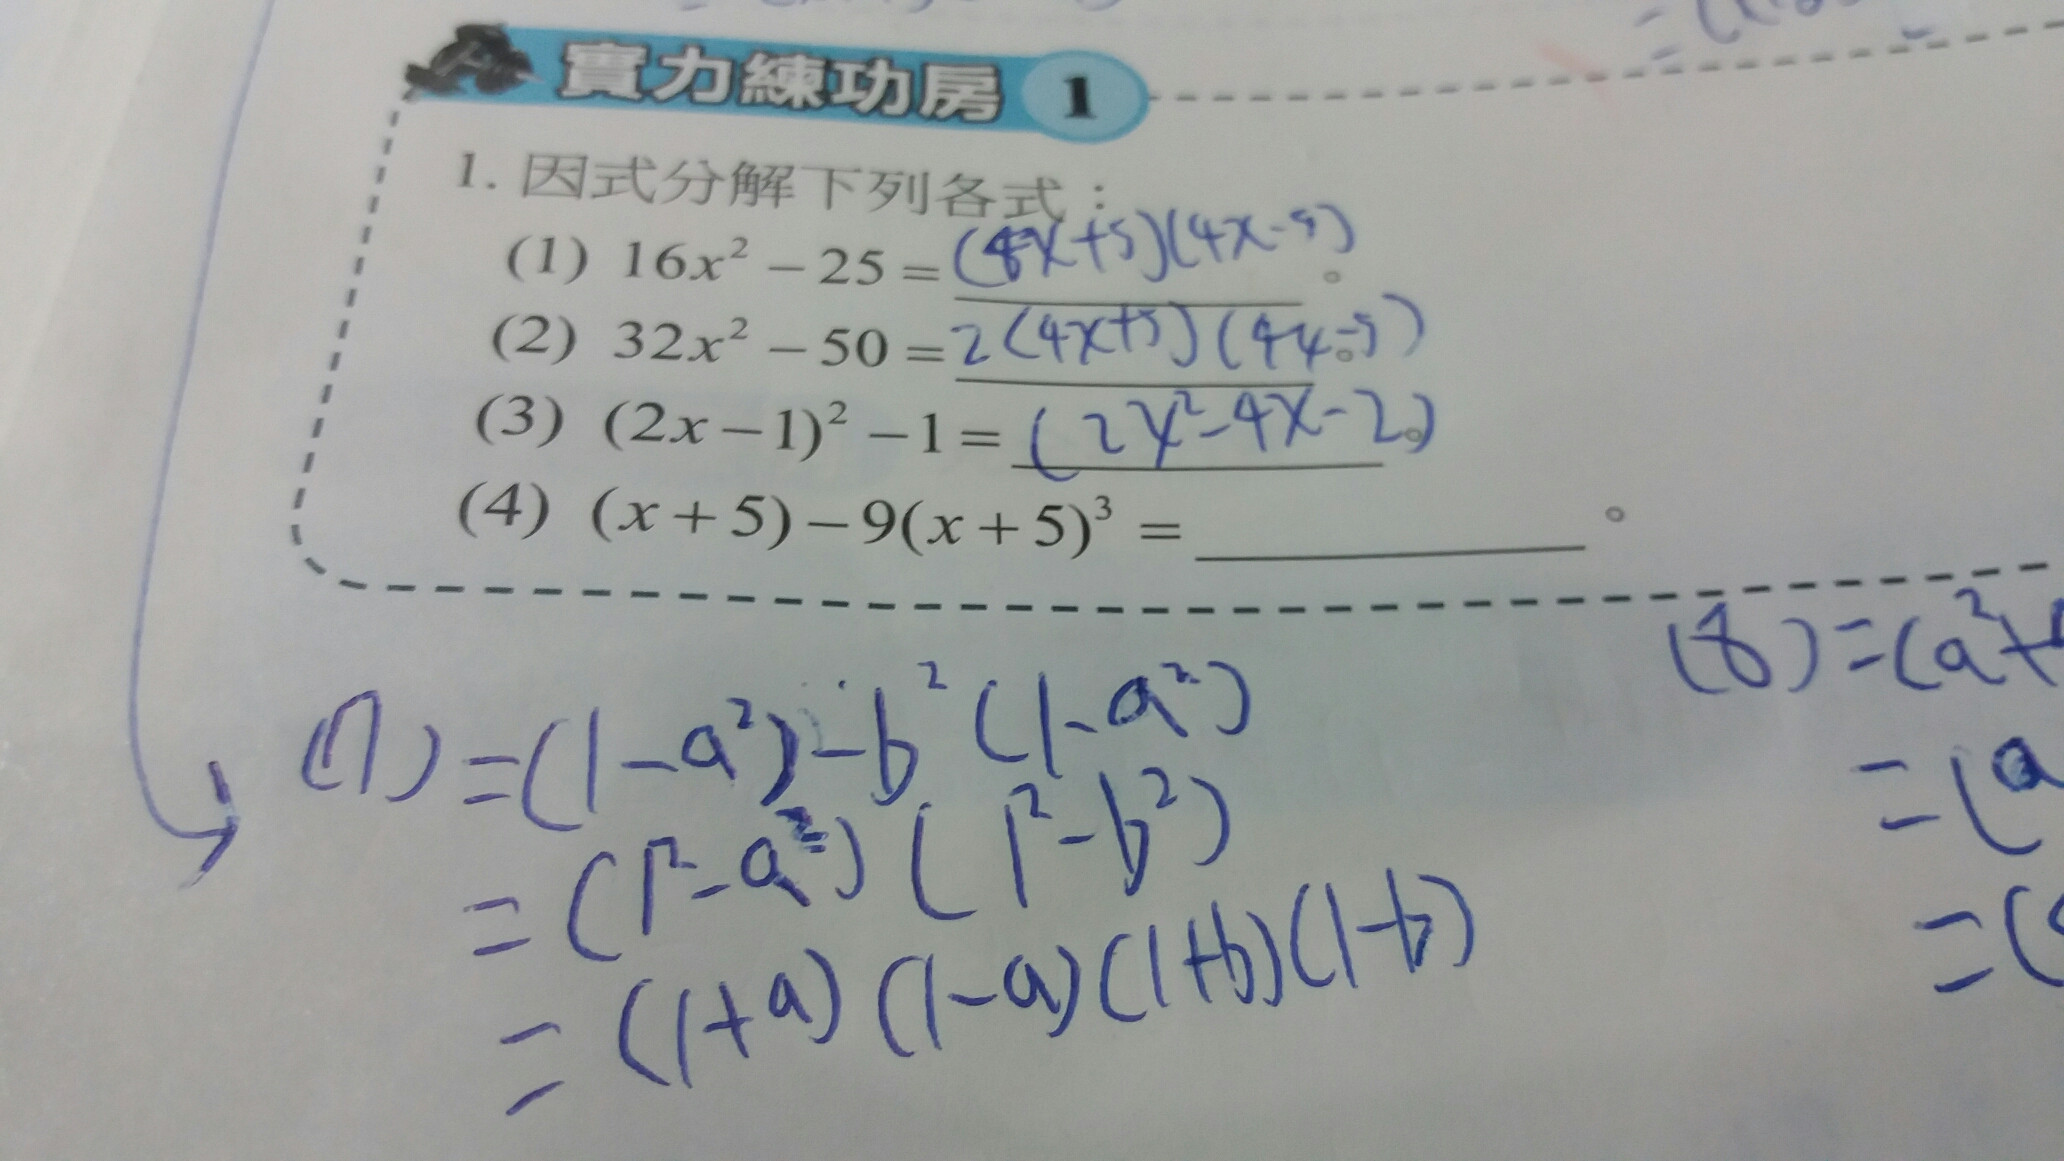 實力練功房 1
1. 因式分解下列各式：
(1) 16x² − 25 = (4x+5)(4x-5)。
(2) 32x² − 50 = 2(4x+5)(4x-5)。
(3) (2x − 1)² − 1 = (2x²-4x-2)。
(4) (x + 5) − 9(x + 5)³ = ______。
(8) = (a²+
(7) = (1-a²)-b²(1-a²)
= (a
= (1²-a²)(1²-b²)
= (
= (1+a)(1-a)(1+b)(1-b)